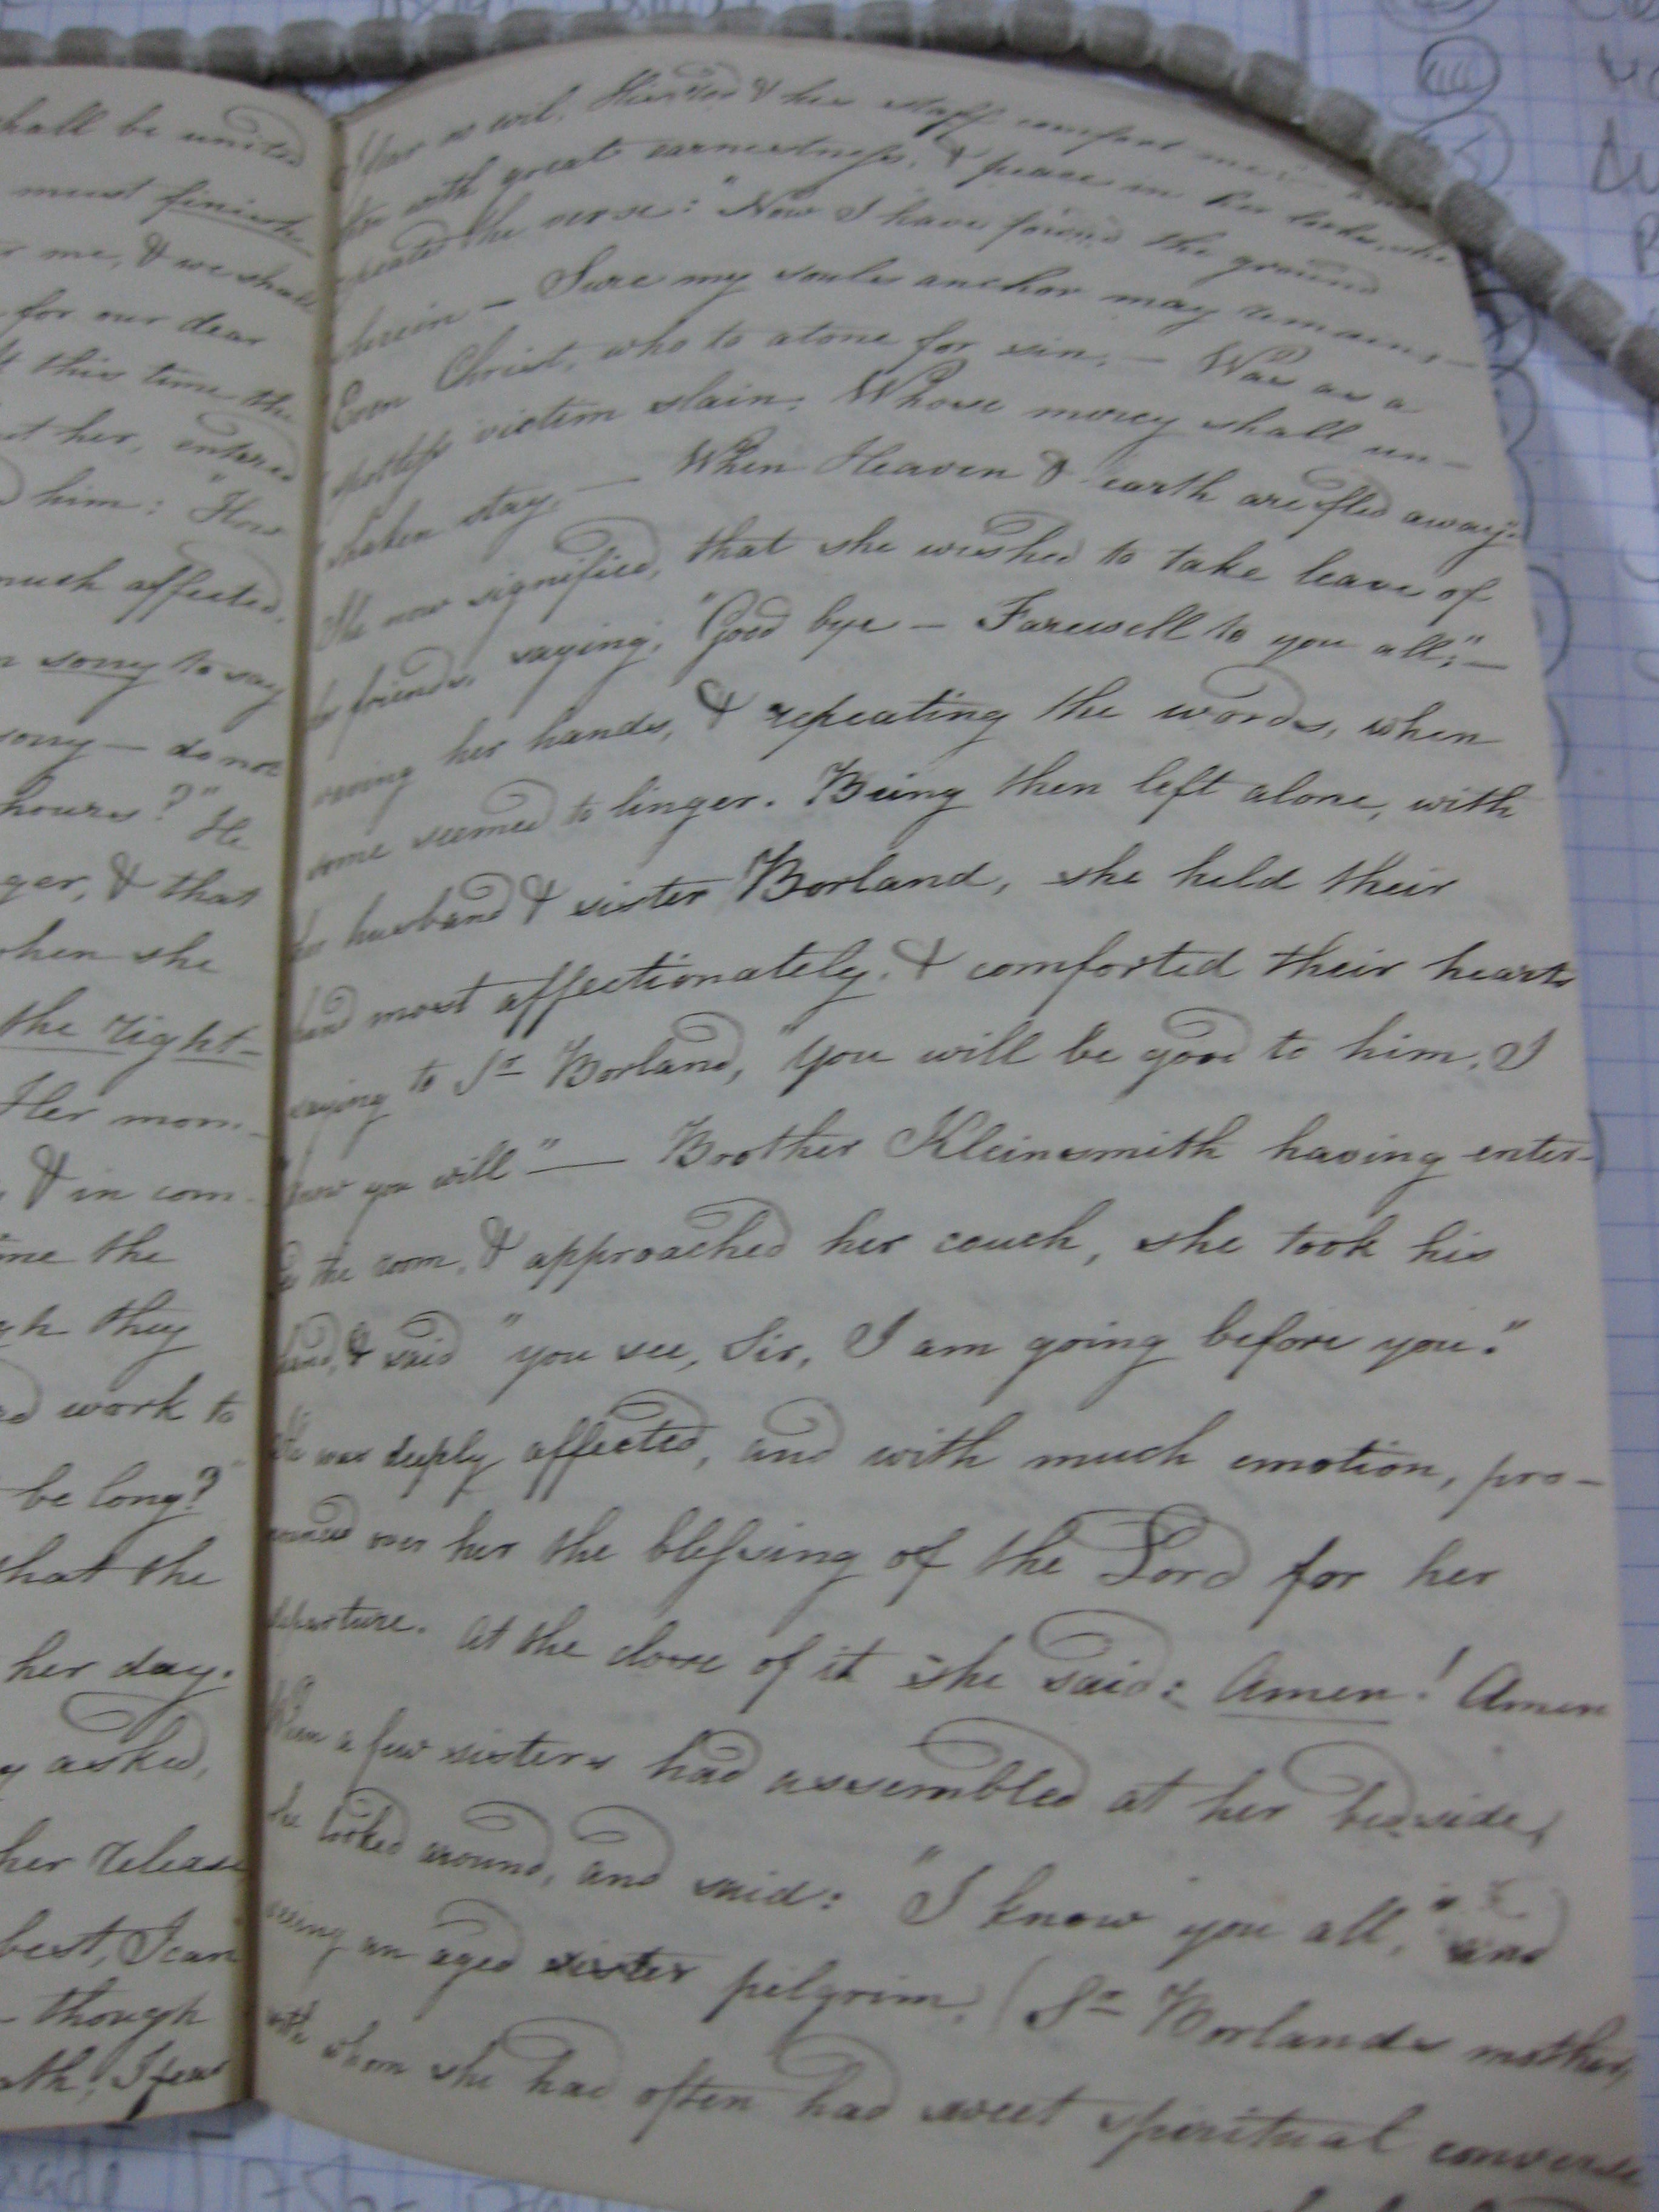 shall be united
must finish
r me, & we shall
for our dear
t this time the
her, entered
him: "How
much affected.
sorry to say
sorry — do not
hours?" He
ger, & that
when she
the right-
Her mom-
& in com-
me the
they
work to
be long?
that the
her day.
asked,
her release
best, I can
though
ath, I fear
I fear no evil, His rod & his staff comfort me
with great earnestness, & peace in her looks, she
repeated the verse: "Now I have found the ground
wherein — Sure my souls anchor may remain, —
Even Christ, who to atone for sin, — Was as a
spotless victim slain. Whose mercy shall un-
shaken stay, — When Heaven & earth are fled away."
She now signified, that she wished to take leave of
her friends, saying, "Good bye — Farewell to you all;" —
waving her hands, & repeating the words, when
some seemed to linger. Being then left alone, with
her husband & sister Borland, she held their
hand most affectionately, & comforted their hearts
saying to Sr Borland, "You will be good to him, I
know you will" — Brother Kleinsmith having enter-
ed the room, & approached her couch, she took his
hand, & said "you see, Sir, I am going before you."
He was deeply affected, and with much emotion, pro-
nounced over her the blessing of the Lord for her
departure. At the close of it she said: Amen! Amen
When a few sisters had assembled at her bedside,
she looked around, and said: "I know you all," and
seeing an aged sister pilgrim, (Sr Borlands mother,
with whom she had often had sweet spiritual converse